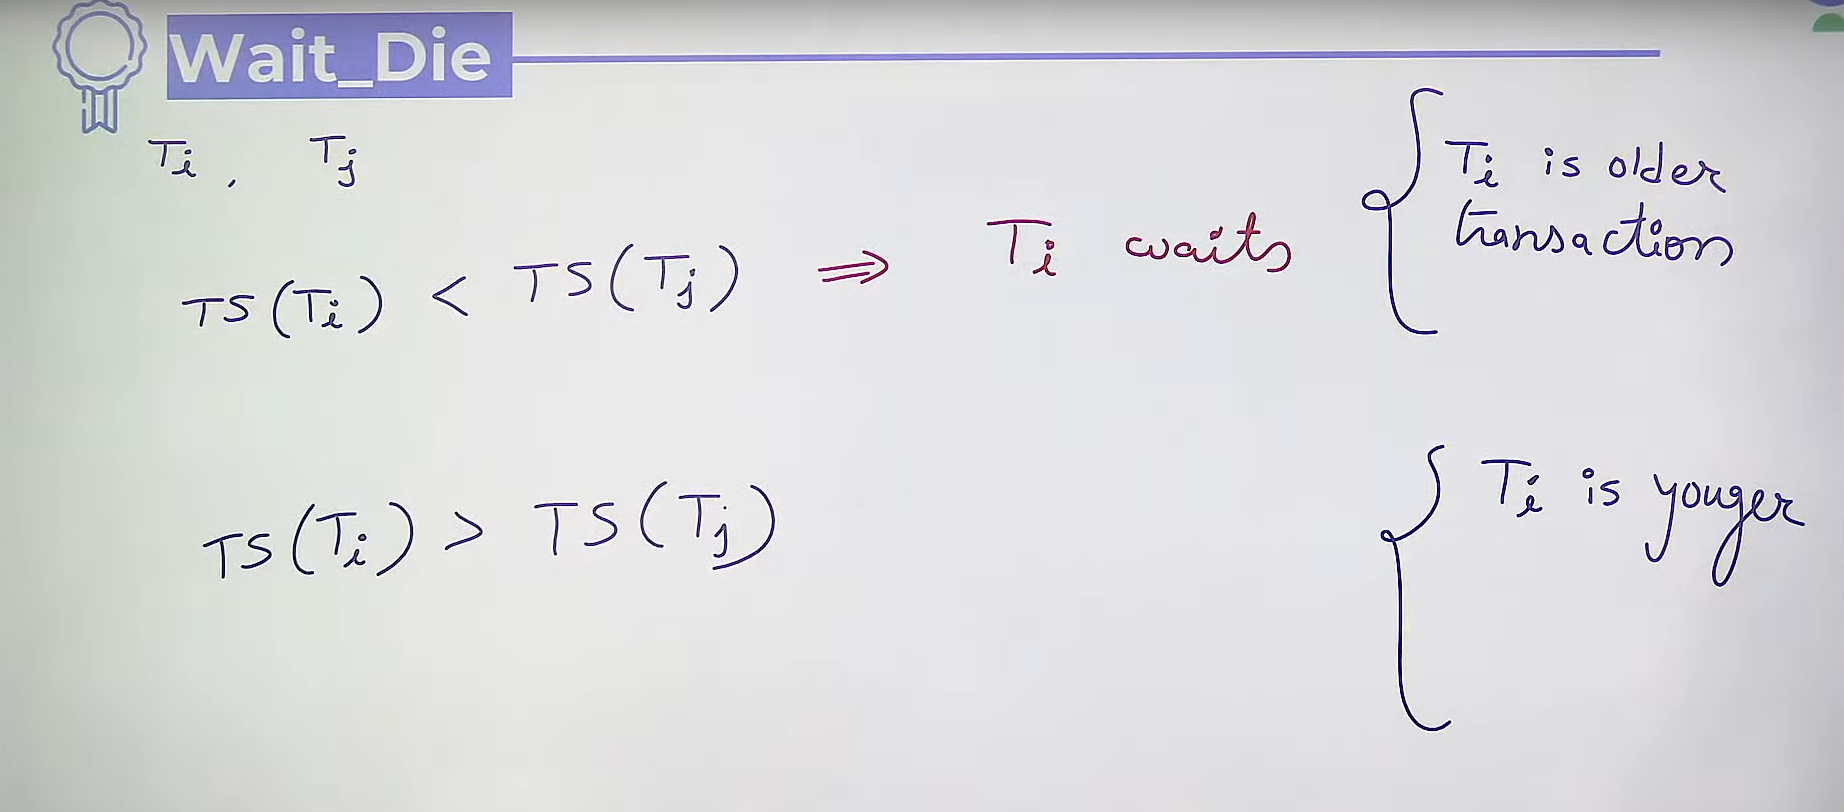 Wait_Die
Ti , Tj
TS(Ti) < TS(Tj) ⇒ Ti waits
Ti is older
transaction
TS(Ti) > TS(Tj)
Ti is youger